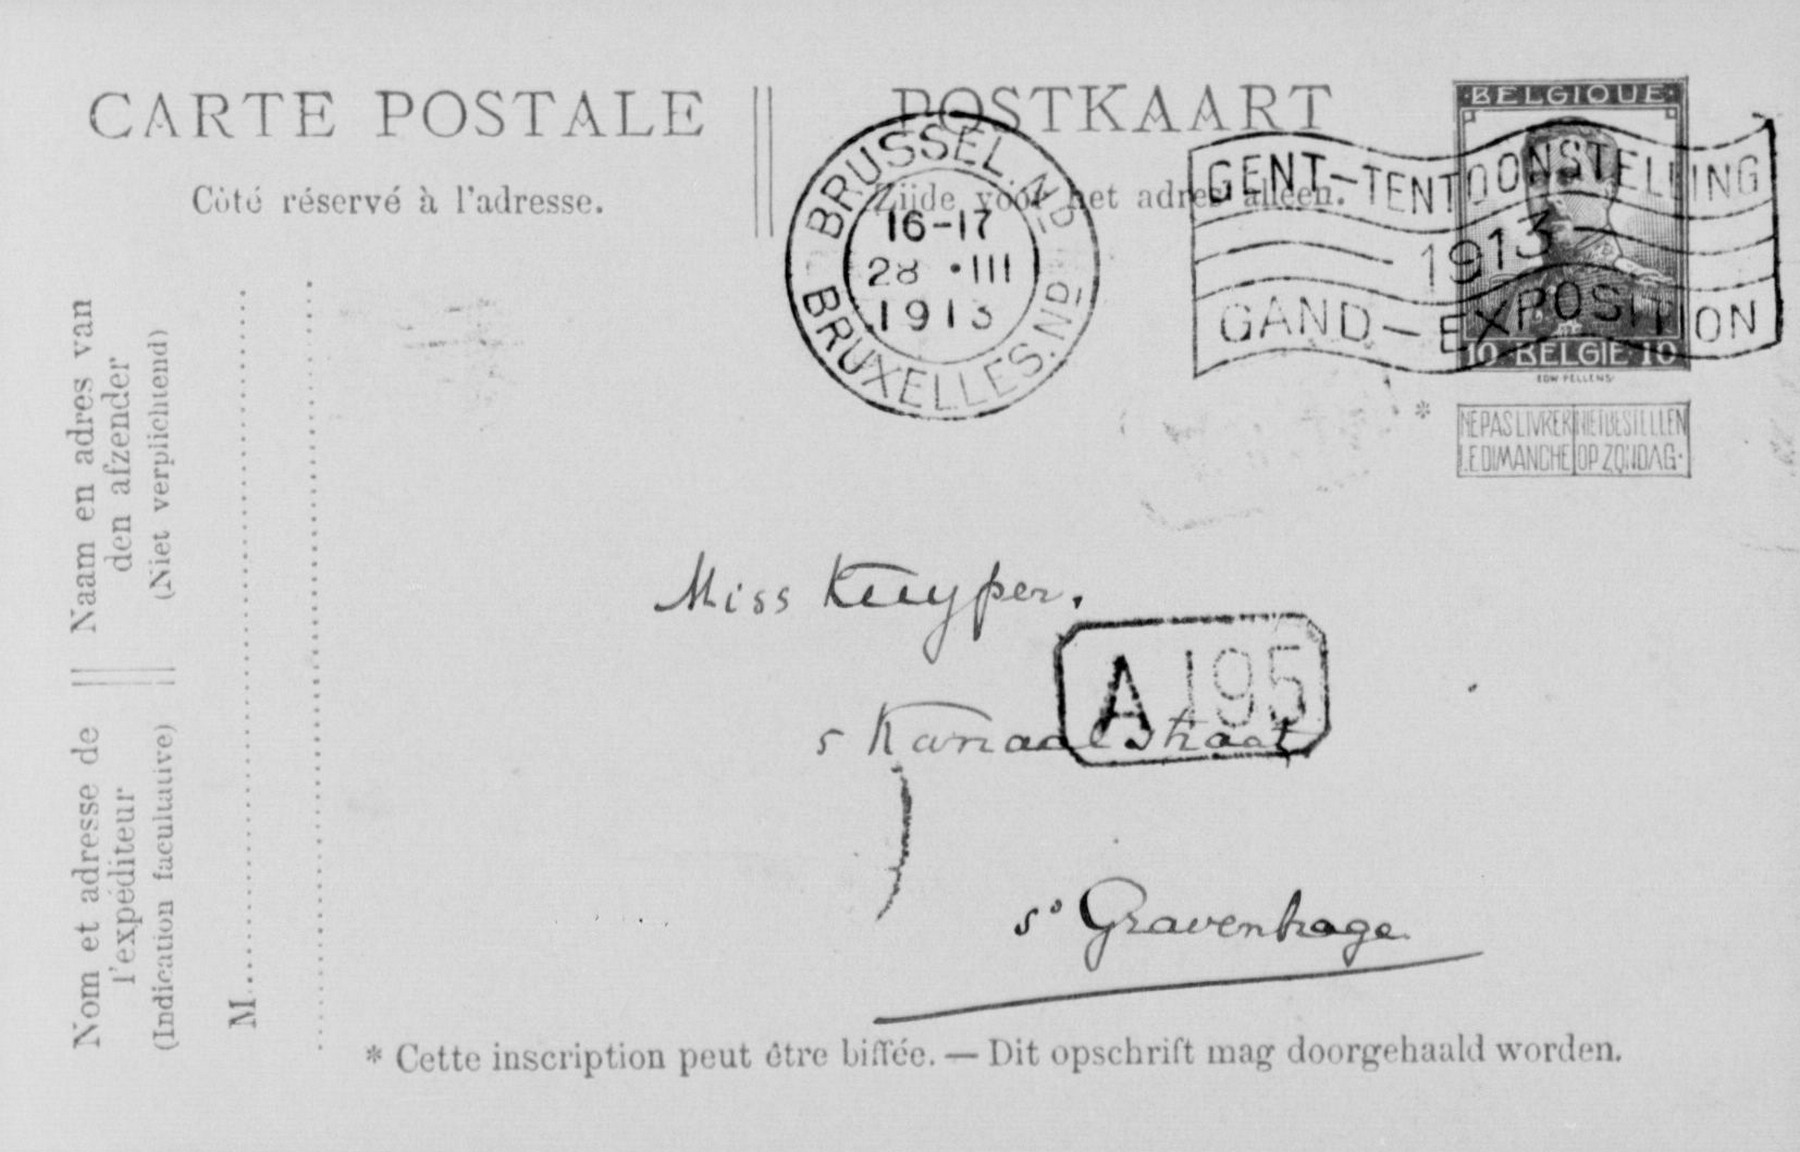 CARTE POSTALE
POSTKAART
Côté réservé à l'adresse.
Zijde vóór het adres alleen.
BRUSSEL.Nd
16-17
28 •III
1913
BRUXELLES.Nd
GENT-TENTOONSTELLING
1913
GAND-EXPOSITION
BELGIQUE
10 BELGIE 10
EDW PELLENS
*
NE PAS LIVRER LE DIMANCHE
NIET BESTELLEN OP ZONDAG.
Naam en adres van
den afzender
(Niet verplichtend)
Nom et adresse de
l'expéditeur
(Indication facultative)
M
Miss Kuyper.
A 195
5 Kanaalstraat
s' Gravenhage
* Cette inscription peut être biffée. — Dit opschrift mag doorgehaald worden.